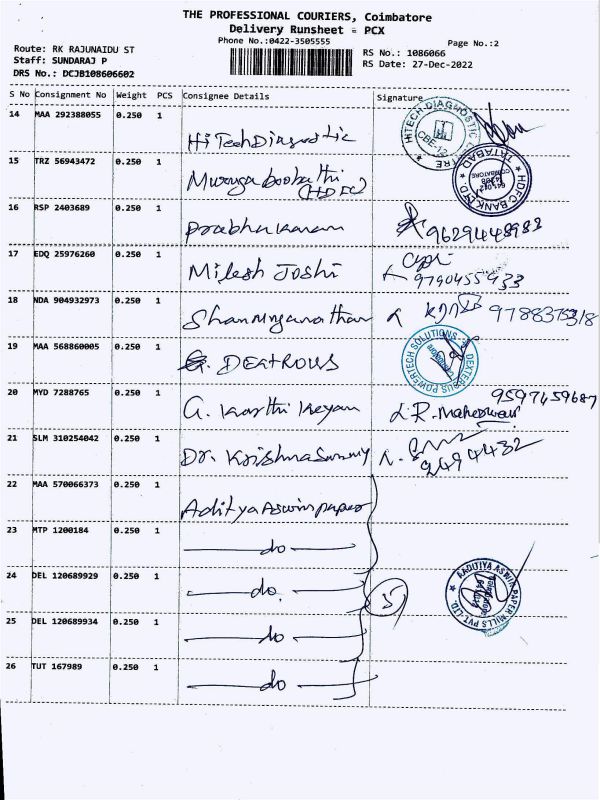 THE PROFESSIONAL COURIERS, Coimbatore
Delivery Runsheet - PCX
Phone No.:0422-3505555
Page No.:2
Route: RK RAJUNAIDU ST
RS No.: 1086066
Staff: SUNDARAJ P
RS Date: 27-Dec-2022
DRS No.: DCJB108606602
S No Consignment No Weight PCS Consignee Details Signature
14 MAA 292388055 0.250 1
HiTechDiagnostic
HITECH DIAGNOSTIC CENTRE
CBE-12
15 TRZ 56943472 0.250 1
(HDFC)
HDFC BANK LTD
TATABAD
COIMBATORE
16 RSP 2403689 0.250 1
Prabhakaran
9629448988
17 EDQ 25976260 0.250 1
Milesh Joshi
9790455933
18 NDA 904932973 0.250 1
Shanmuganathan
19 MAA 568860005 0.250 1
DEXTROUS
DEXTEROUS POWERTECH SOLUTIONS
20 MYD 7288765 0.250 1
G. Karthikeyan
R. Maheswari
9597459687
21 SLM 310254042 0.250 1
Dr. Krishnasamy
2494432
22 MAA 570066373 0.250 1
Aditya Aswin paper
23 MTP 1200184 0.250 1
do
24 DEL 120689929 0.250 1
do.
5
AADITIYA ASWIN PAPER MILLS PVT.LTD.
25 DEL 120689934 0.250 1
do
26 TUT 167989 0.250 1
do